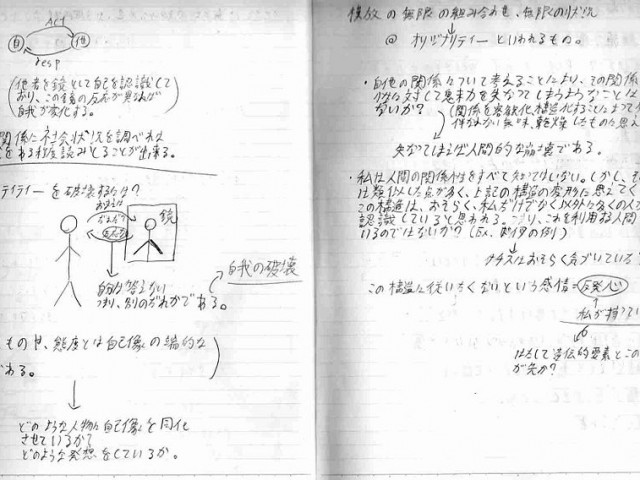 Act
自
他
resp
他者を鏡として自己を認識して
おり、この鏡の反応が異なれば
自我が変化する。
関係に社会状況を調べれば
ある程度読みとることが出来る。
ティティーを破壊するには?
おまえは
だれだ?
鏡
自分が答えない
つまり、別のだれかである。
自我の破壊
態度とは自己像の端的な
である。
どのような人物に自己像を同化
させているか?
どのような発想をしているか。
模放の無限の組み合わせ、無限の状況
@ オリジナリティーといわれるもの。
・自他の関係について考えることにより、その関係
に対して意味を失なってしまうようなことは
ないか?
(関係を客観化、構造化することによって
失なってしまえば人間的な崩壊である。
・私は人間の関係性をすべて知ってはいない。しかし、そ
は類似した点が多く、上記の構造の変形に思えて
この構造は、おそらく、私だけでなく以外な多くの人
認識していると思われる。つまり、これを利用する人間
いるのではないか? (Ex.
の例)
ナチスはおそらく気づいている
この構造に従いたくないという感情=反発心
私が
はたして遺伝的要素とこの
が先か?